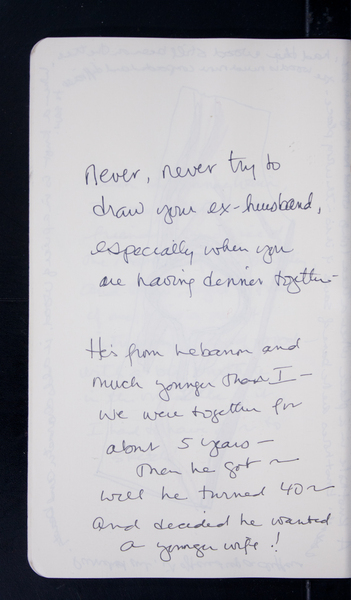 never, never try to
draw your ex-husband,
especially when you
are having dinner together–
He's from Lebanon and
much younger than I –
we were together for
about 5 years –
Then he got ~
well he turned 40 ~
and decided he wanted
a younger wife!